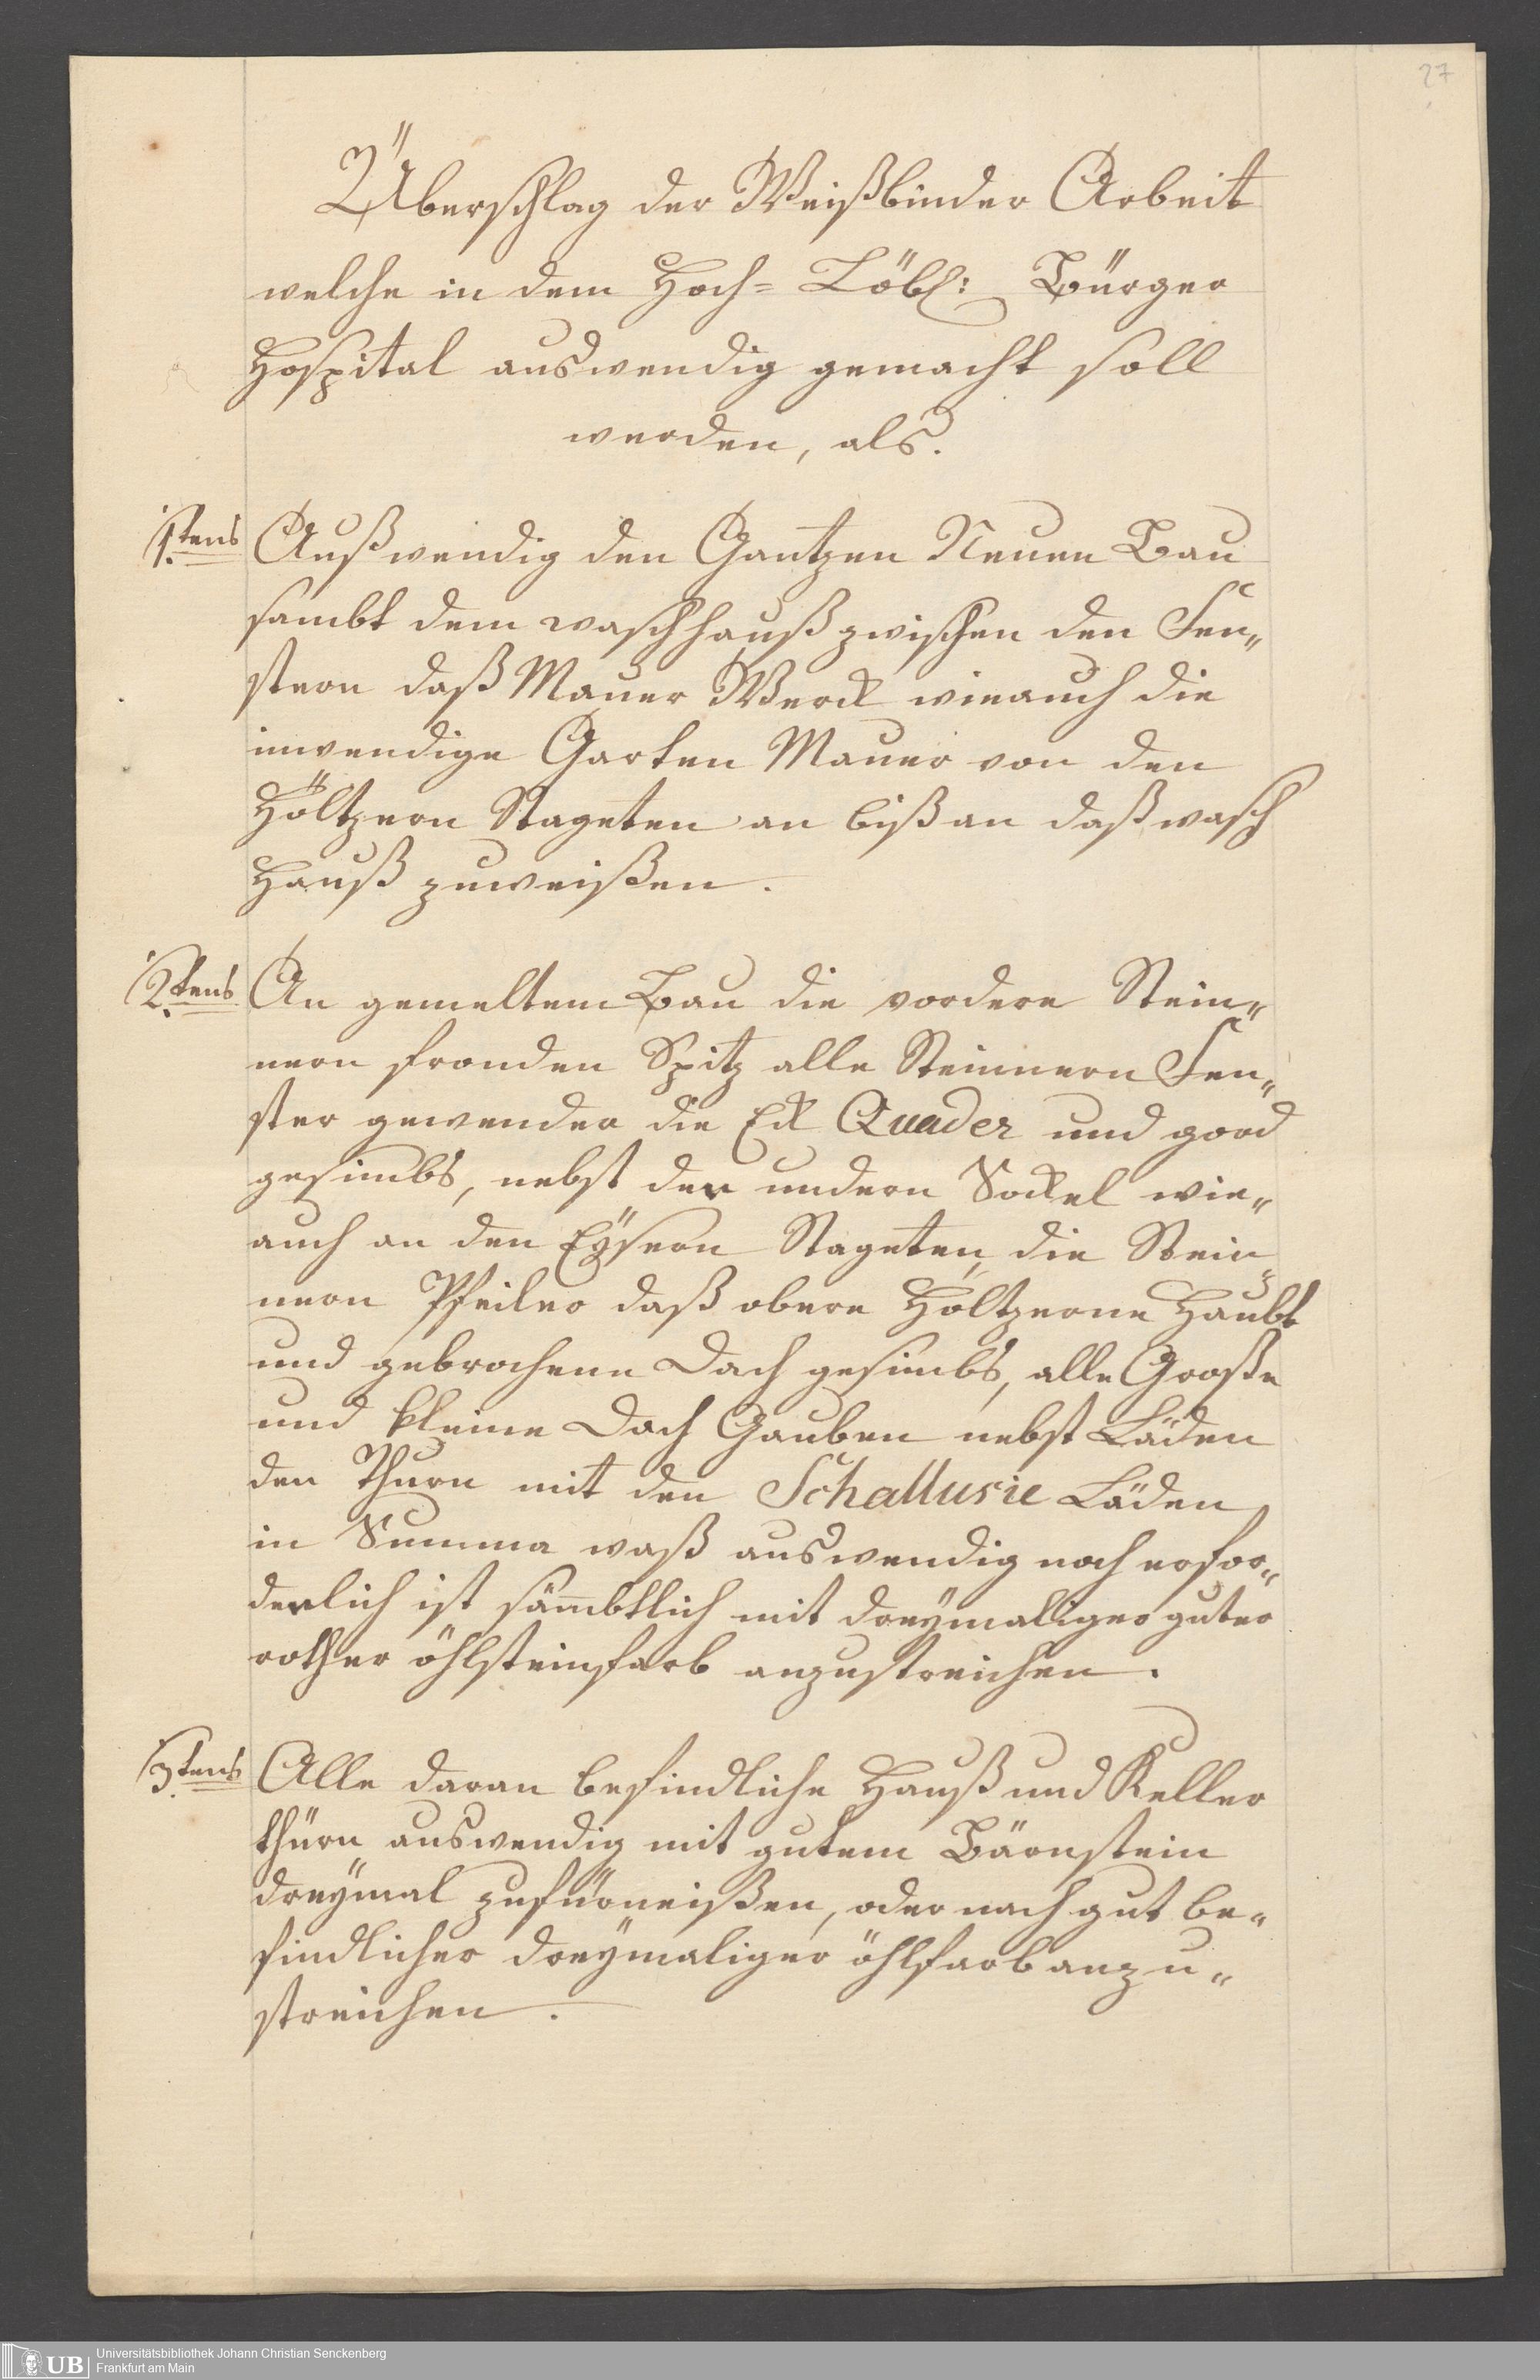 27
Überschlag der Weißbinder Arbeit
welche in dem Hoch= Löbl: Bürger
Hospital auswendig gemacht soll
werden, als.
1.tens Außwendig den Gantzen Neuen Bau
sambt dem waschhauß zwischen den Fen„
stern daß Mauer Werck wieauch die
inwendige Garten Mauer von den
Höltzern Stageten an biß an daß wasch
Hauß zuweißen.
2.tens An gemeltem Bau die vordere Stein„
nern fronden Spitz alle Steinnern Fen„
ster gewender die Eck Quader und gord
gesimbs, nebst der undern Sockel wie„
auch an den Eÿsern Stageten, die Stein„
nern Pfeiler daß obere Höltzerne Haubt
und gebrochene Dach gesimbs, alle Große
und kleine Dach Gauben nebst Läden
den Thurn mit den Schallusie Läden
in Summa waß auswendig noch erfor„
derlich ist sämbtlich mit dreymaliger guter
rother öhlsteinfarb anzustreichen.
3.tens Alle daran befindliche Hauß und Keller
thürn auswendig mit gutem Bärnstein
dreÿmal zufürneißen, oder nach gut be„
findlicher dreÿmaliger öhlfarb anzu„
streichen.
UB Universitätsbibliothek Johann Christian Senckenberg
Frankfurt am Main